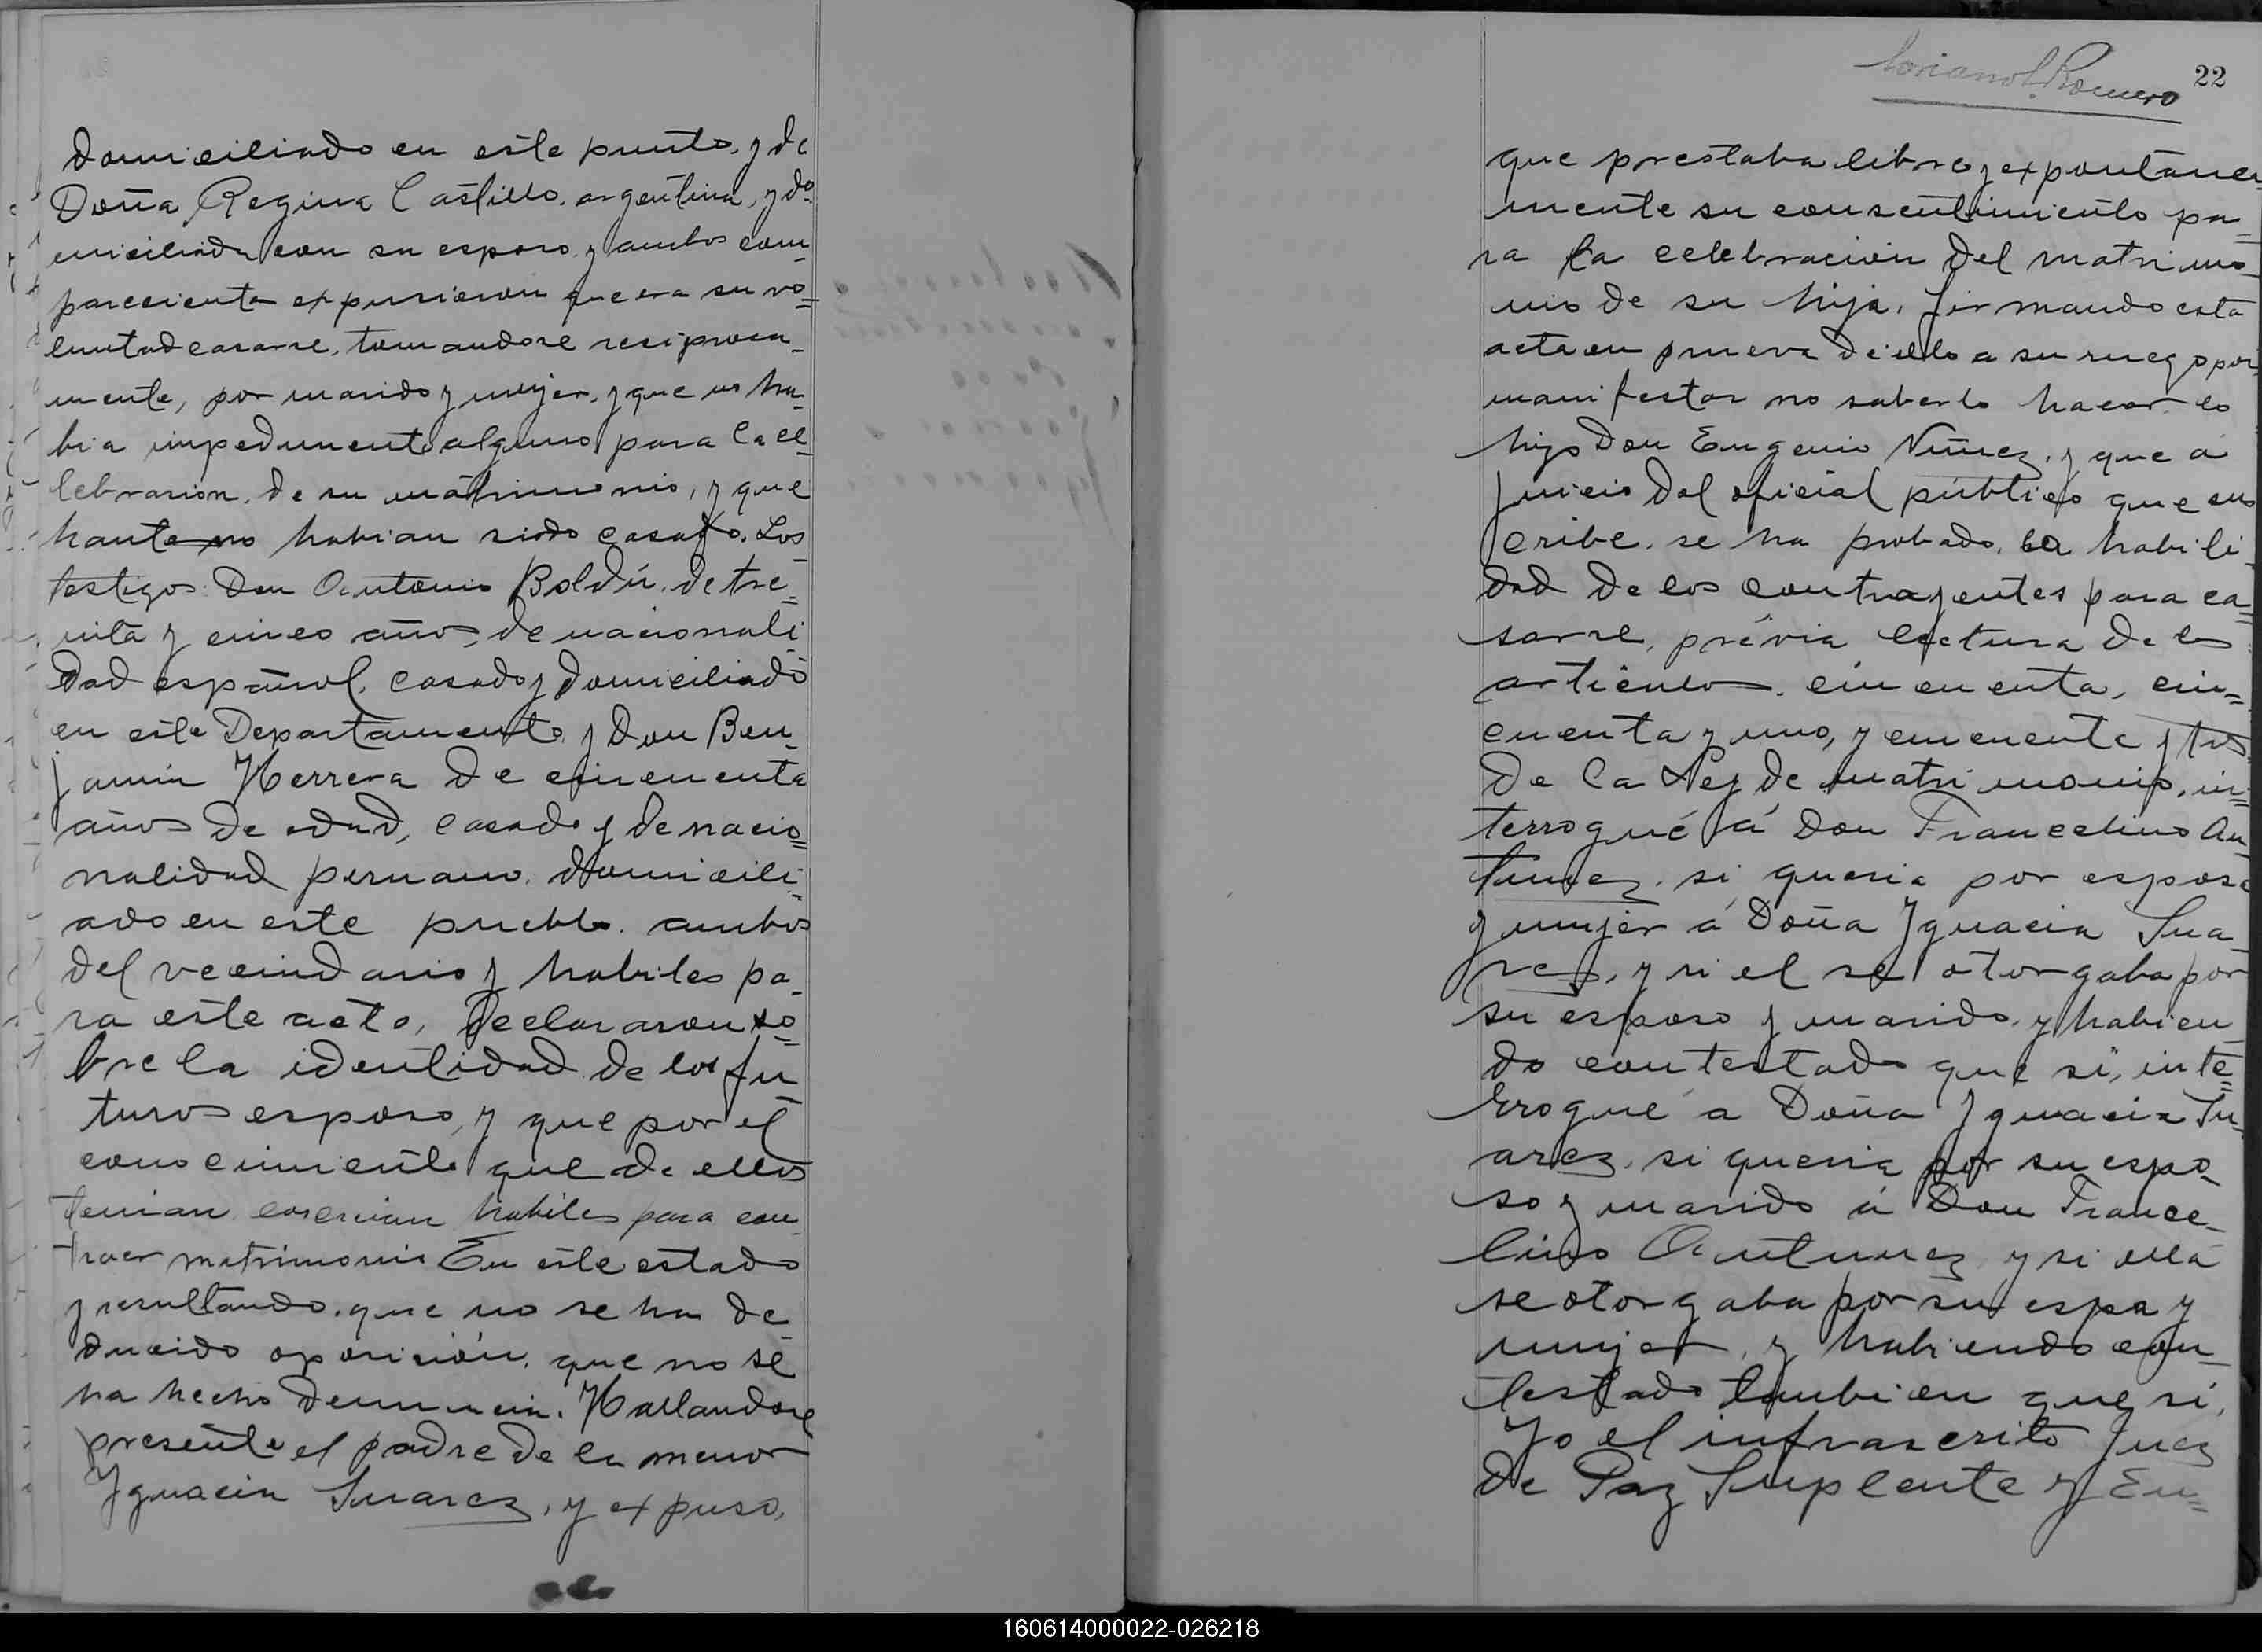 domiciliado en este punto, y de
Doña Regina Castillo, argentina, y do
miciliada con su esposo, y ambos com
pareciente expusieron que era su vo=
luntad casarse, tomandose reciproca_
mente, por marido y mujer, y que no ha_
bia impedimento alguno para la ce_
lebracion, de su matrimonio, y que
hante no habian sido casado. Los
testigos: Don Antonio Boldú, de tre_
inta y cinco años, de nacionali_
dad español, casado y domiciliado
en este Departamento y Don Ben_
jamin Herrera de cincuenta
años de edad, casado y de nacio=
nalidad peruano, domicili_
ado en este pueblo, ambos
del vecindario y habiles pa_
ra este acto, declararon so=
bre la identidad de los fu_
turos esposo, y que por el
conocimiento que de ellos
tenian, los creian habiles para con
traer matrimonio En este estado
y resultando, que no se ha de_
ducido oposición, que no se
ha hecho denuncia. Hallandose
presente el padre de la menor
Ygnacia Suarez, y expuso,
Soriano L. Romero
22
que prestaba libre y expontanea
mente su consentimiento pa=
ra la celebracion del matrimo_
nio de su hija, firmando esta
acta en prueva de ello a su ruego por
manifestar no saberlo hacer lo
hizo Don Eugenio Nuñez, y que a
juicio del oficial público que sus
cribe, se ha probado, la habili_
dad de los contrayentes para ca=
sarse, prévia lectura de los
articulos cincuenta, cin=
cuenta y uno, y cincuenta y tres
de la Ley de matrimonio, in=
terrogué á Don Francelino An
tunez, si queria por esposa
y mujer á Doña Ygnacia Sua_
rez, y si el se otorgaba por
su esposo y marido, y habien_
do contestado que si, inte=
rrogué a Doña Ygnacia Su_
arez, si queria por su espo_
so y marido á Don France_
lino Antunez, y si ella
se otorgaba por su espa y
mujer, y habiendo con_
testado tambien que si,
Yo el infrascrito Juez
de Paz Suplente y En=
160614000022-026218